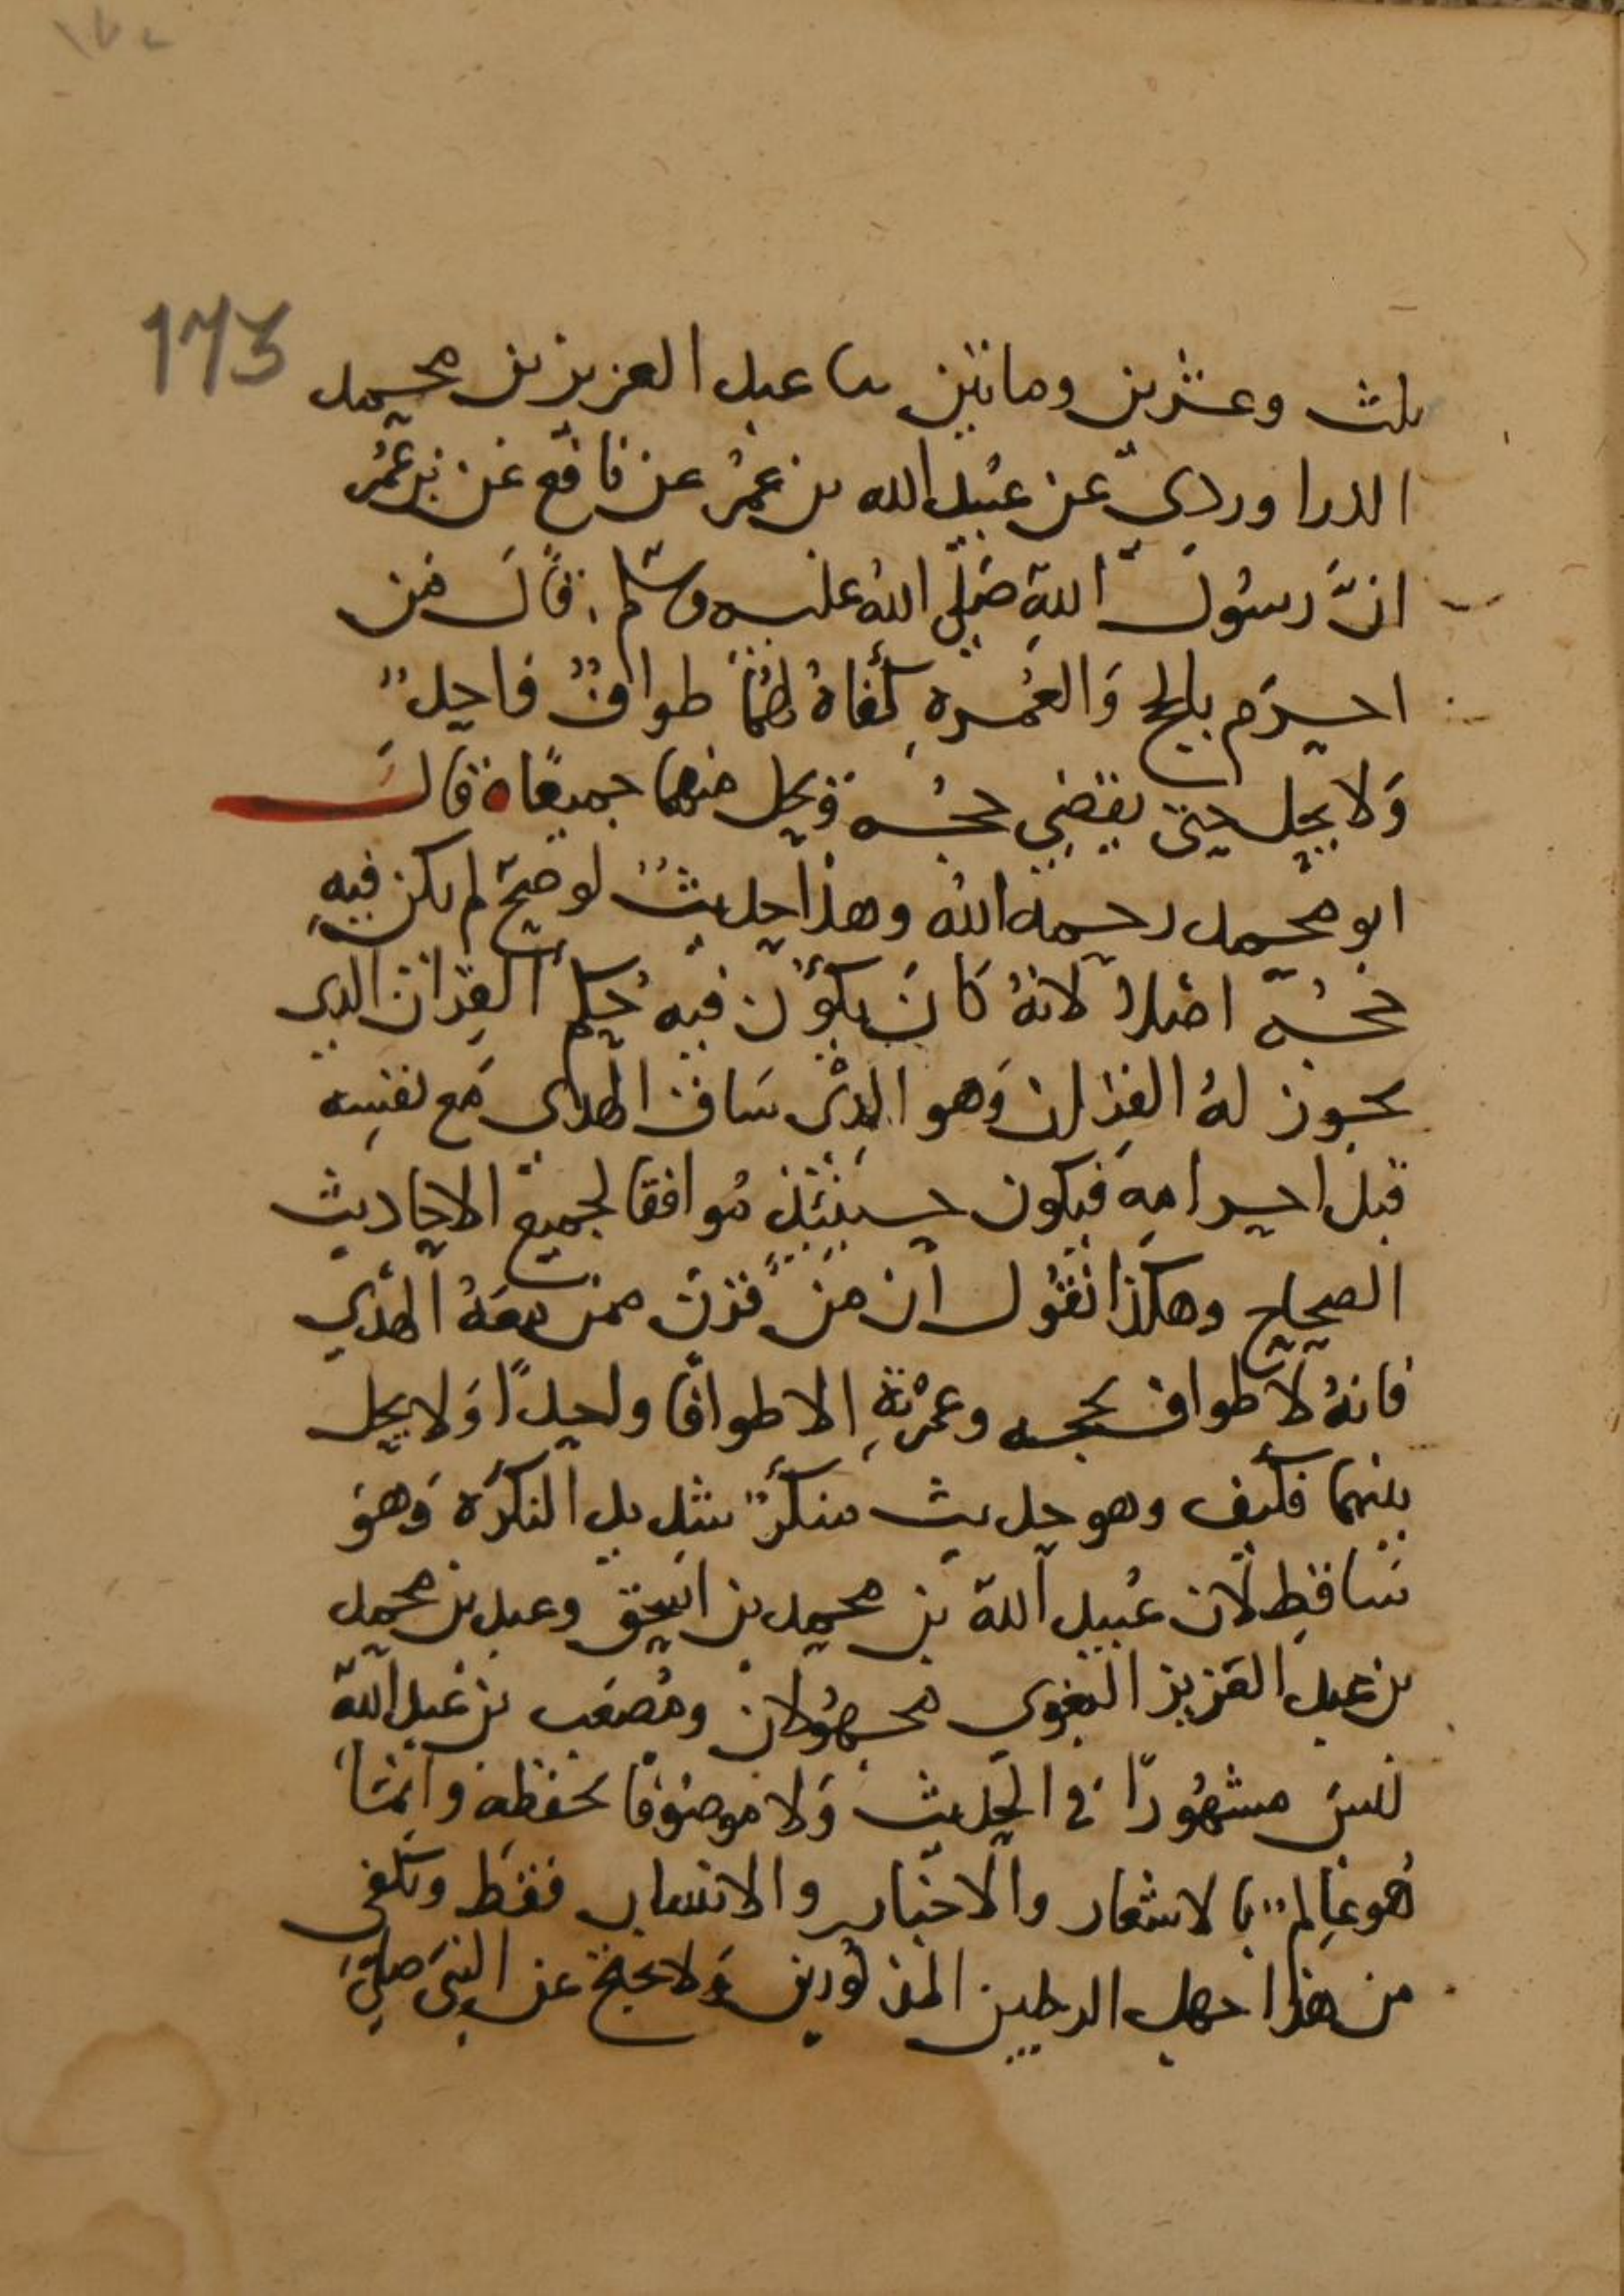 173
ثلث وعشرين ومائتين ثنا عبد العزيز بن محمد
الدراورديّ عن عُبيد الله بن عمرُ عن نافع عن بن عُمر
انّ رسُول اللهِ صَلّى اللهُ عليه وسَلّم قَال مَن
احرَم بالحج وَالعُمرةِ كَفاهُ لهُمَا طوافٌ واحدٌ
وَلا يحل حتى يقضي حجُه ويحل منهما جميعًا ه قال
ابو محمد رحمه الله وهذا حديثٌ لو صحّ لم يكن فيهِ
حجُّه اصْلاً لانهُ كانَ يكوُن فيه حُكم القِران الذي
يجوز لهُ القِران وَهو الذِيْ سَاق الهدى مَع نفسِه
قبل احرامِهِ فيكون حينئذٍ مُوافقا لجميع الاحاديث
الصحاح وهكذا نقُول ان مَن قرن ممن معَهُ الهدْي
فانهُ لا طواف لحجه وعمْرتِهِ الا طوافًا واحدًا وَلا يحل
بينهما فكيف وهو حديث منكرٌ شديد النكرَة وَهوَ
سَاقِط لان عُبيد الله بن محمد بن اسحق وعبد بن محمد
بن عبد العزيز البغوي مجهُولان ومُصعَب بن عَبد اللهِ
ليسَ مشهُورًا في الحديث وَلا موصُوفًا بحفظه وانمَا
هُو عالمٌ بالاشعار والاخبار والانساب فقط ويكفى
من هذا جهل الرجلين المذكورين وَلا يحتج عن النبيّ صلىَ